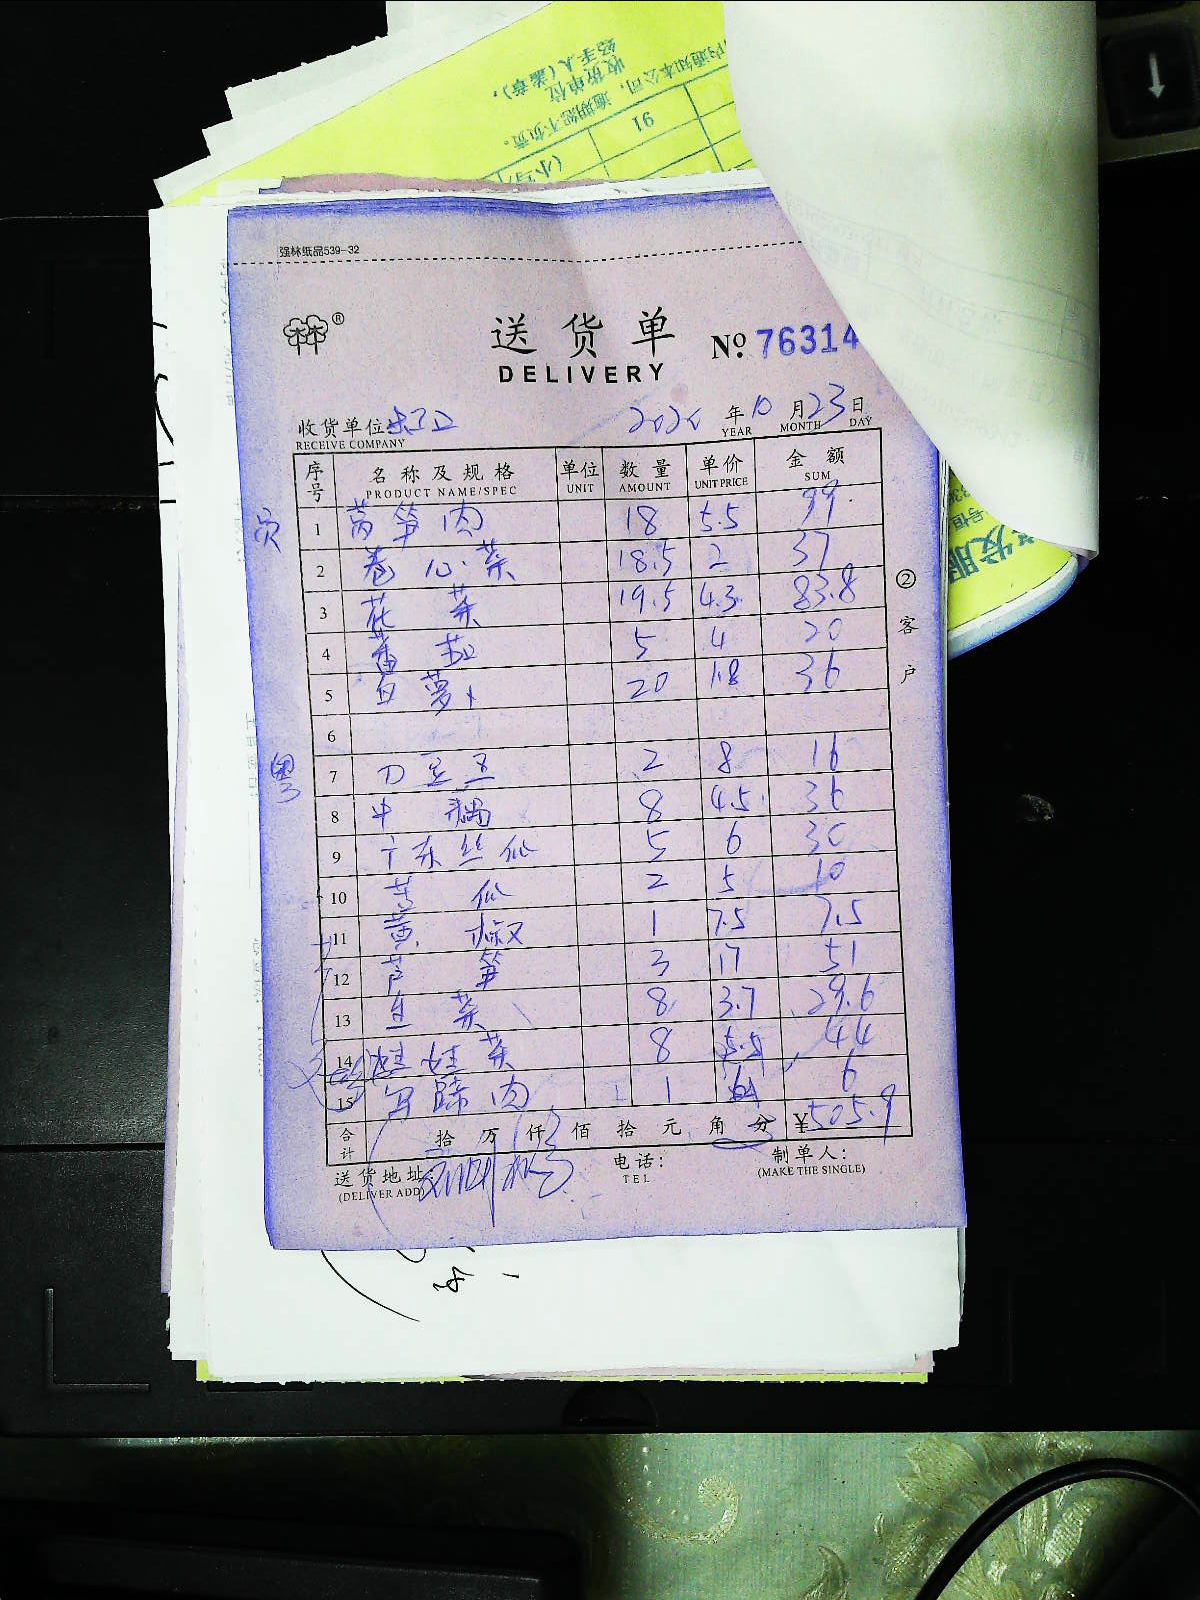 收货单位
经手人(盖章)
内通知本公司,逾期恕不负责。
91
强林纸品539-32
®
送货单
DELIVERY
No 76314
收货单位
RECEIVE COMPANY
2020 年 10 月 23 日
YEAR MONTH DAY
序号 名称及规格 单位 数量 单价 金额
PRODUCT NAME/SPEC UNIT AMOUNT UNIT PRICE SUM
1 莴笋肉 18 5.5 99
2 卷心菜 18.5 2 37
3 花菜 19.5 4.3 83.8
4 蕃茄 5 4 20
5 白萝卜 20 1.8 36
6
7 刀豆 2 8 16
8 中藕 8 4.5 36
9 广东丝瓜 5 6 30
10 苦瓜 2 5 10
11 黄椒 1 7.5 7.5
12 芦笋 3 17 51
13 生菜 8 3.7 29.6
14 娃娃菜 8 5.5 44
15 马蹄肉 1 6 6
合计 拾 万 仟 佰 拾 元 角 分 ¥505.9
送货地址:
(DELIVER ADD)
电话:
TEL
制单人:
(MAKE THE SINGLE)
②客户